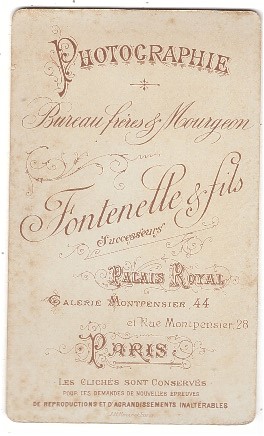 PHOTOGRAPHIE
Bureau frères & Mourgeon
Fontenelle & fils
Successeurs
PALAIS ROYAL
GALERIE MONTPENSIER 44
et Rue Montpensier, 28
PARIS
LES CLICHÉS SONT CONSERVÉS
POUR LES DEMANDES DE NOUVELLES ÉPREUVES
DE REPRODUCTIONS ET D'AGRANDISSEMENTS INALTÉRABLES